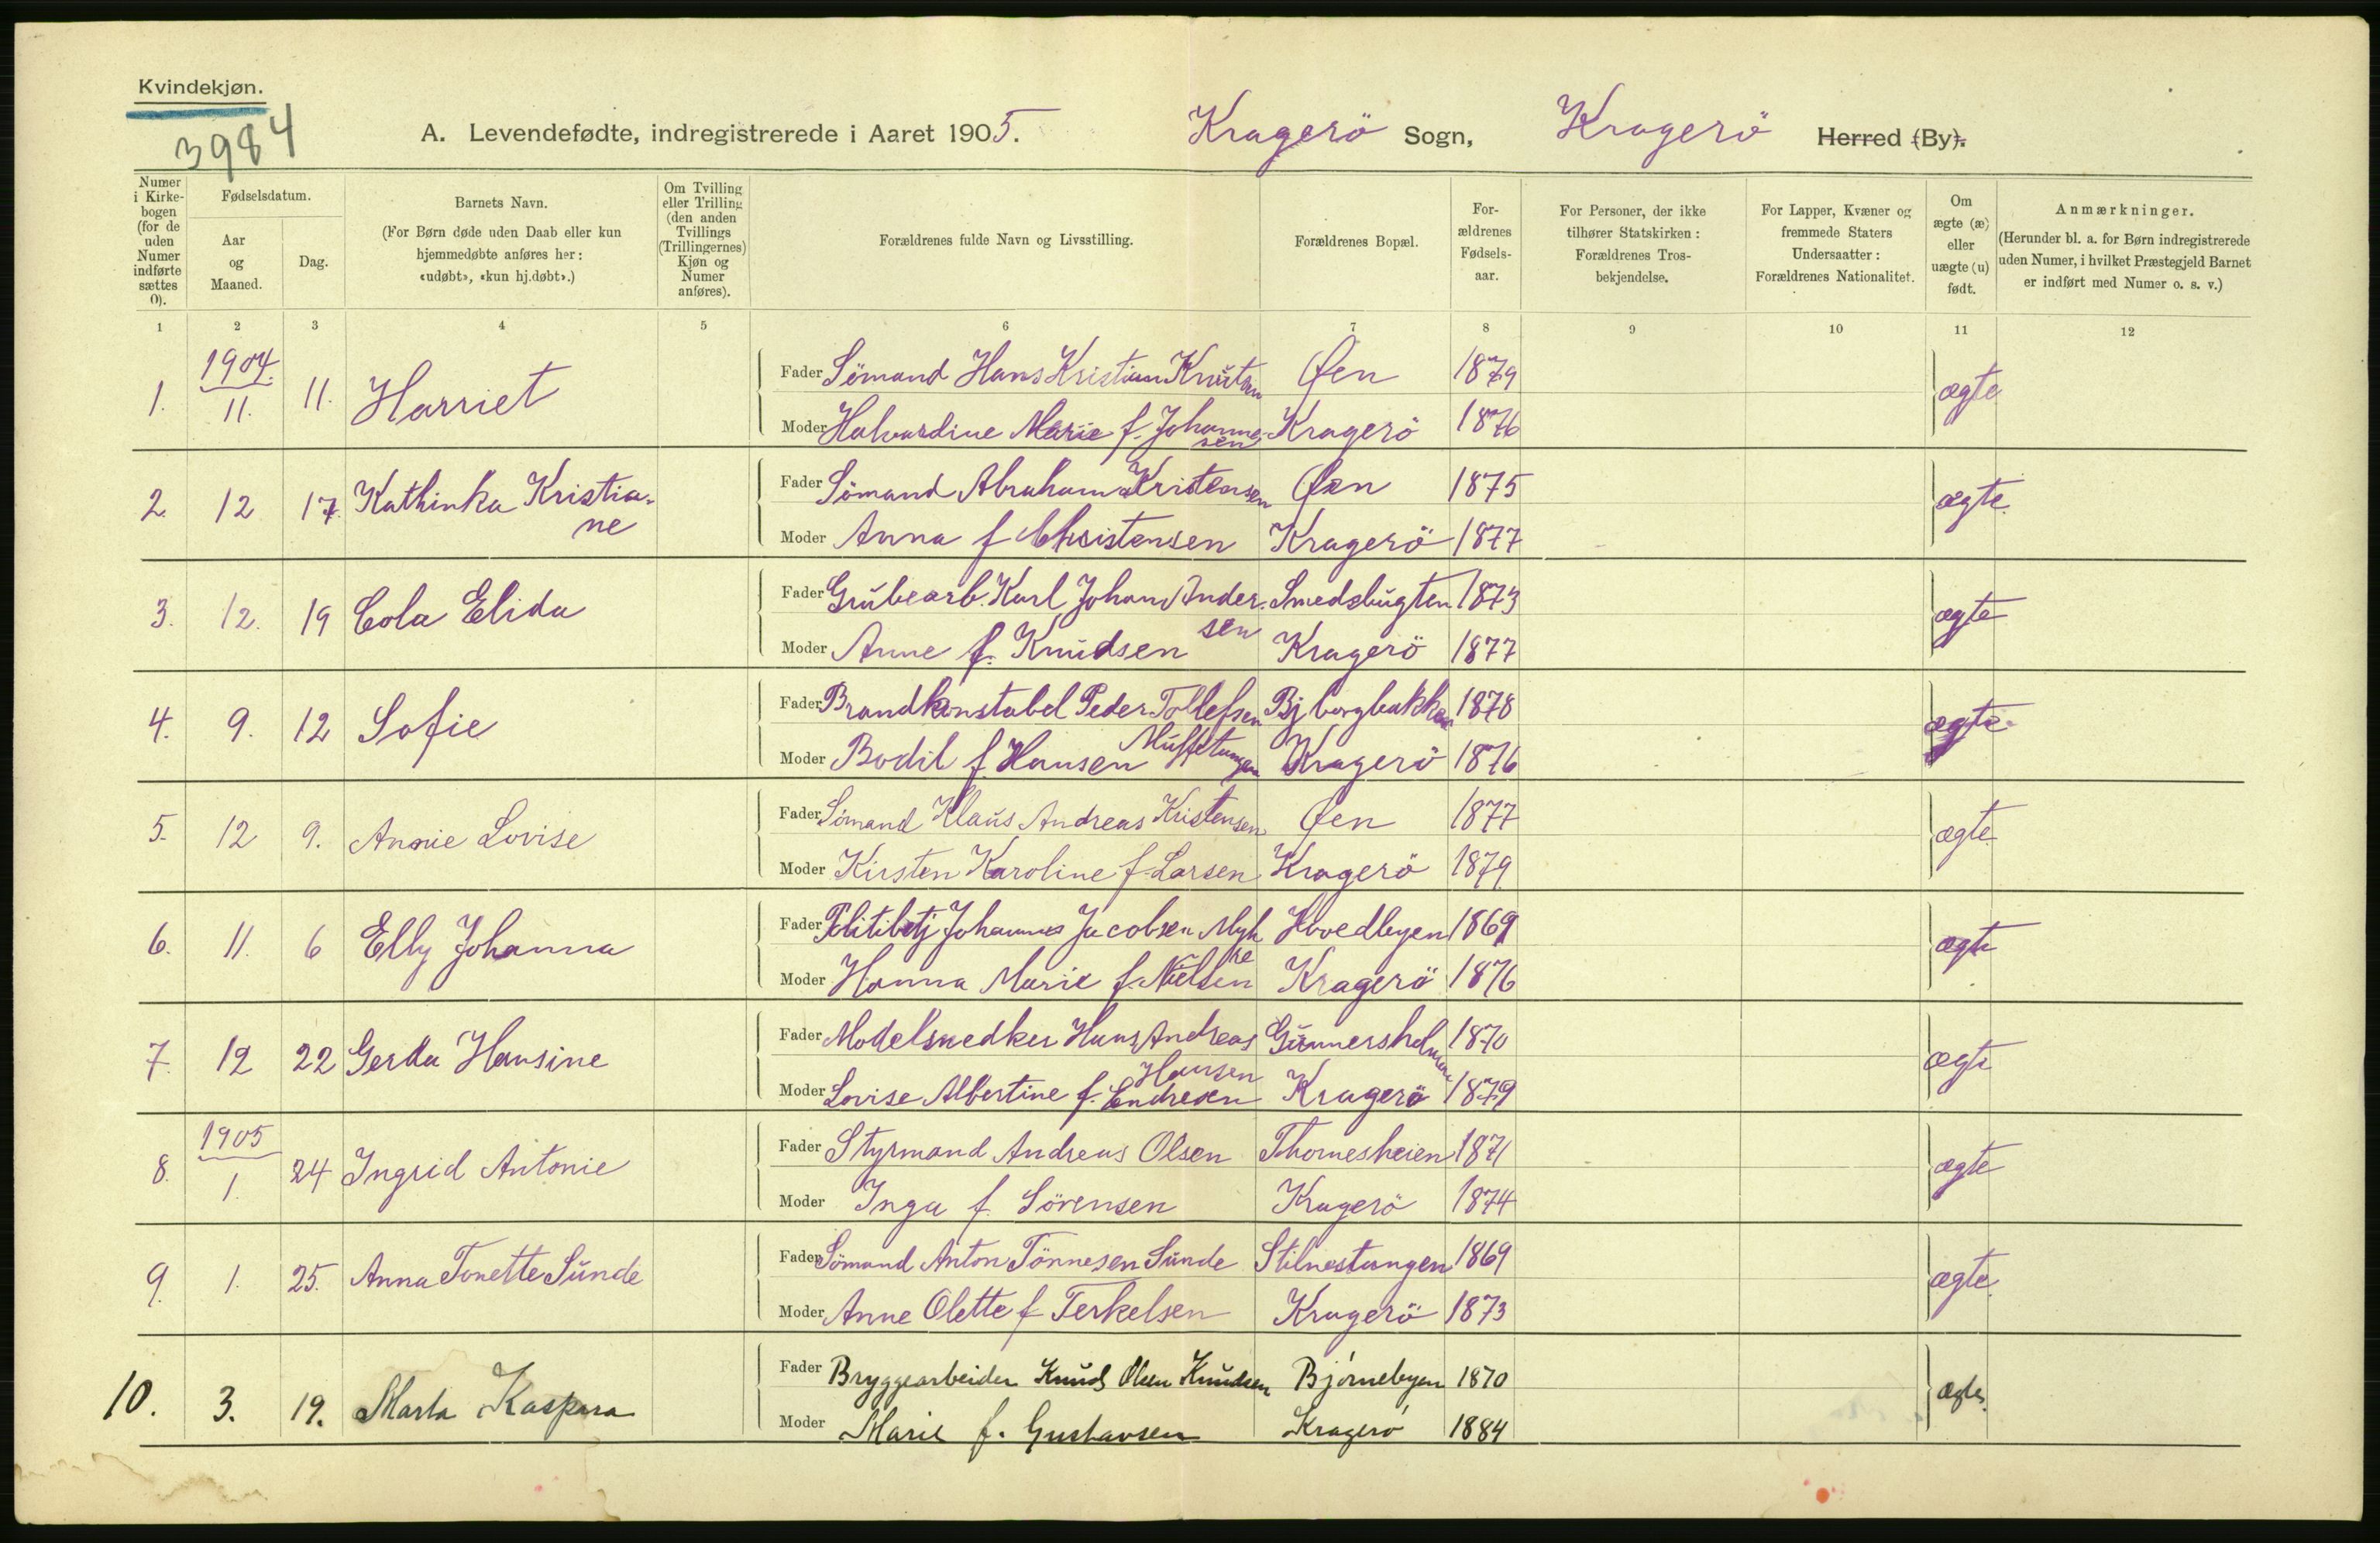 Kvindekjøn.
3984
A. Levendefødte, indregistrerede i Aaret 1905. Kragerö Sogn, Kragerö Herred (By).
Numer i Kirke-bogen (for de uden Numer indførte sættes 0).
Fødselsdatum.
Aar og Maaned.
Dag.
Barnets Navn.
(For Børn døde uden Daab eller kun
hjemmedøbte anføres her:
«udøbt», «kun hj.døbt».)
Om Tvilling
eller Trilling
(den anden
Tvillings
(Trillingernes)
Kjøn og
Numer
anføres).
Forældrenes fulde Navn og Livsstilling.
Forældrenes Bopæl.
For-
ældrenes
Fødsels-
aar.
For Personer, der ikke
tilhører Statskirken:
Forældrenes Tros-
bekjendelse.
For Lapper, Kvæner og
fremmede Staters
Undersaatter:
Forældrenes Nationalitet.
Om
ægte (æ)
eller
uægte (u)
født.
Anmærkninger.
(Herunder bl. a. for Børn indregistrerede
uden Numer, i hvilket Præstegjeld Barnet
er indført med Numer o. s. v.)
1 2 3 4 5 6 7 8 9 10 11 12
1. 1904. 11. 11. Harriet
Fader Sömand Hans Kristian Knutsen Øen 1879 ægte
Moder Halvardine Marie f. Johannesen Kragerö 1876
2. 12 17. Kathinka Kristia-
ne
Fader Sömand Abraham Kristensen Øen 1875 ægte.
Moder Anna f Christensen Kragerö 1877
3. 12. 19 Cola Elida
Fader Grubearb. Karl Johan Ander- Smedsbugten 1873 ægte
sen
Moder Anne f. Knudsen Kragerö 1877
4. 9. 12 Sofie
Fader Brandkonstabel Peder Tollefsen Bjborgbakken 1878 ægte
Moder Bodil f. Hansen Kragerö 1876
5. 12 9. Annie Lovise
Fader Sömand Klaus Andreas Kristensen Øen 1877 ægte
Moder Kirsten Karoline f. Larsen Kragerö 1879
6. 11. 6 Elly Johanna
Fader Politibetj Johannes Jacobsen Myh Hovedbyen 1869 ægte
re
Moder Hanna Marie f. Nielsen Kragerö 1876
7. 12 22 Gerda Hansine
Fader Modelsnedker Hans Andreas Gunnersholmen 1870 ægte
Hansen
Moder Lovise Albertine f. Endresen Kragerö 1879
8. 1905 1. 24 Ingrid Antonie
Fader Styrmand Andreas Olsen Thomesheien 1871 ægte
Moder Inga f. Sörensen Kragerö 1874
9. 1. 25. Anna Tonette Sunde
Fader Sömand Anton Tönnesen Sunde Stilnestangen 1869 ægte
Moder Anne Olette f Terkelsen Kragerö 1873
10. 3. 19. Marta Kaspara
Fader Bryggearbeider Knud Olsen Knudsen Björnebyen 1870 ægte.
Moder Marie f. Gustavsen Kragerö 1884